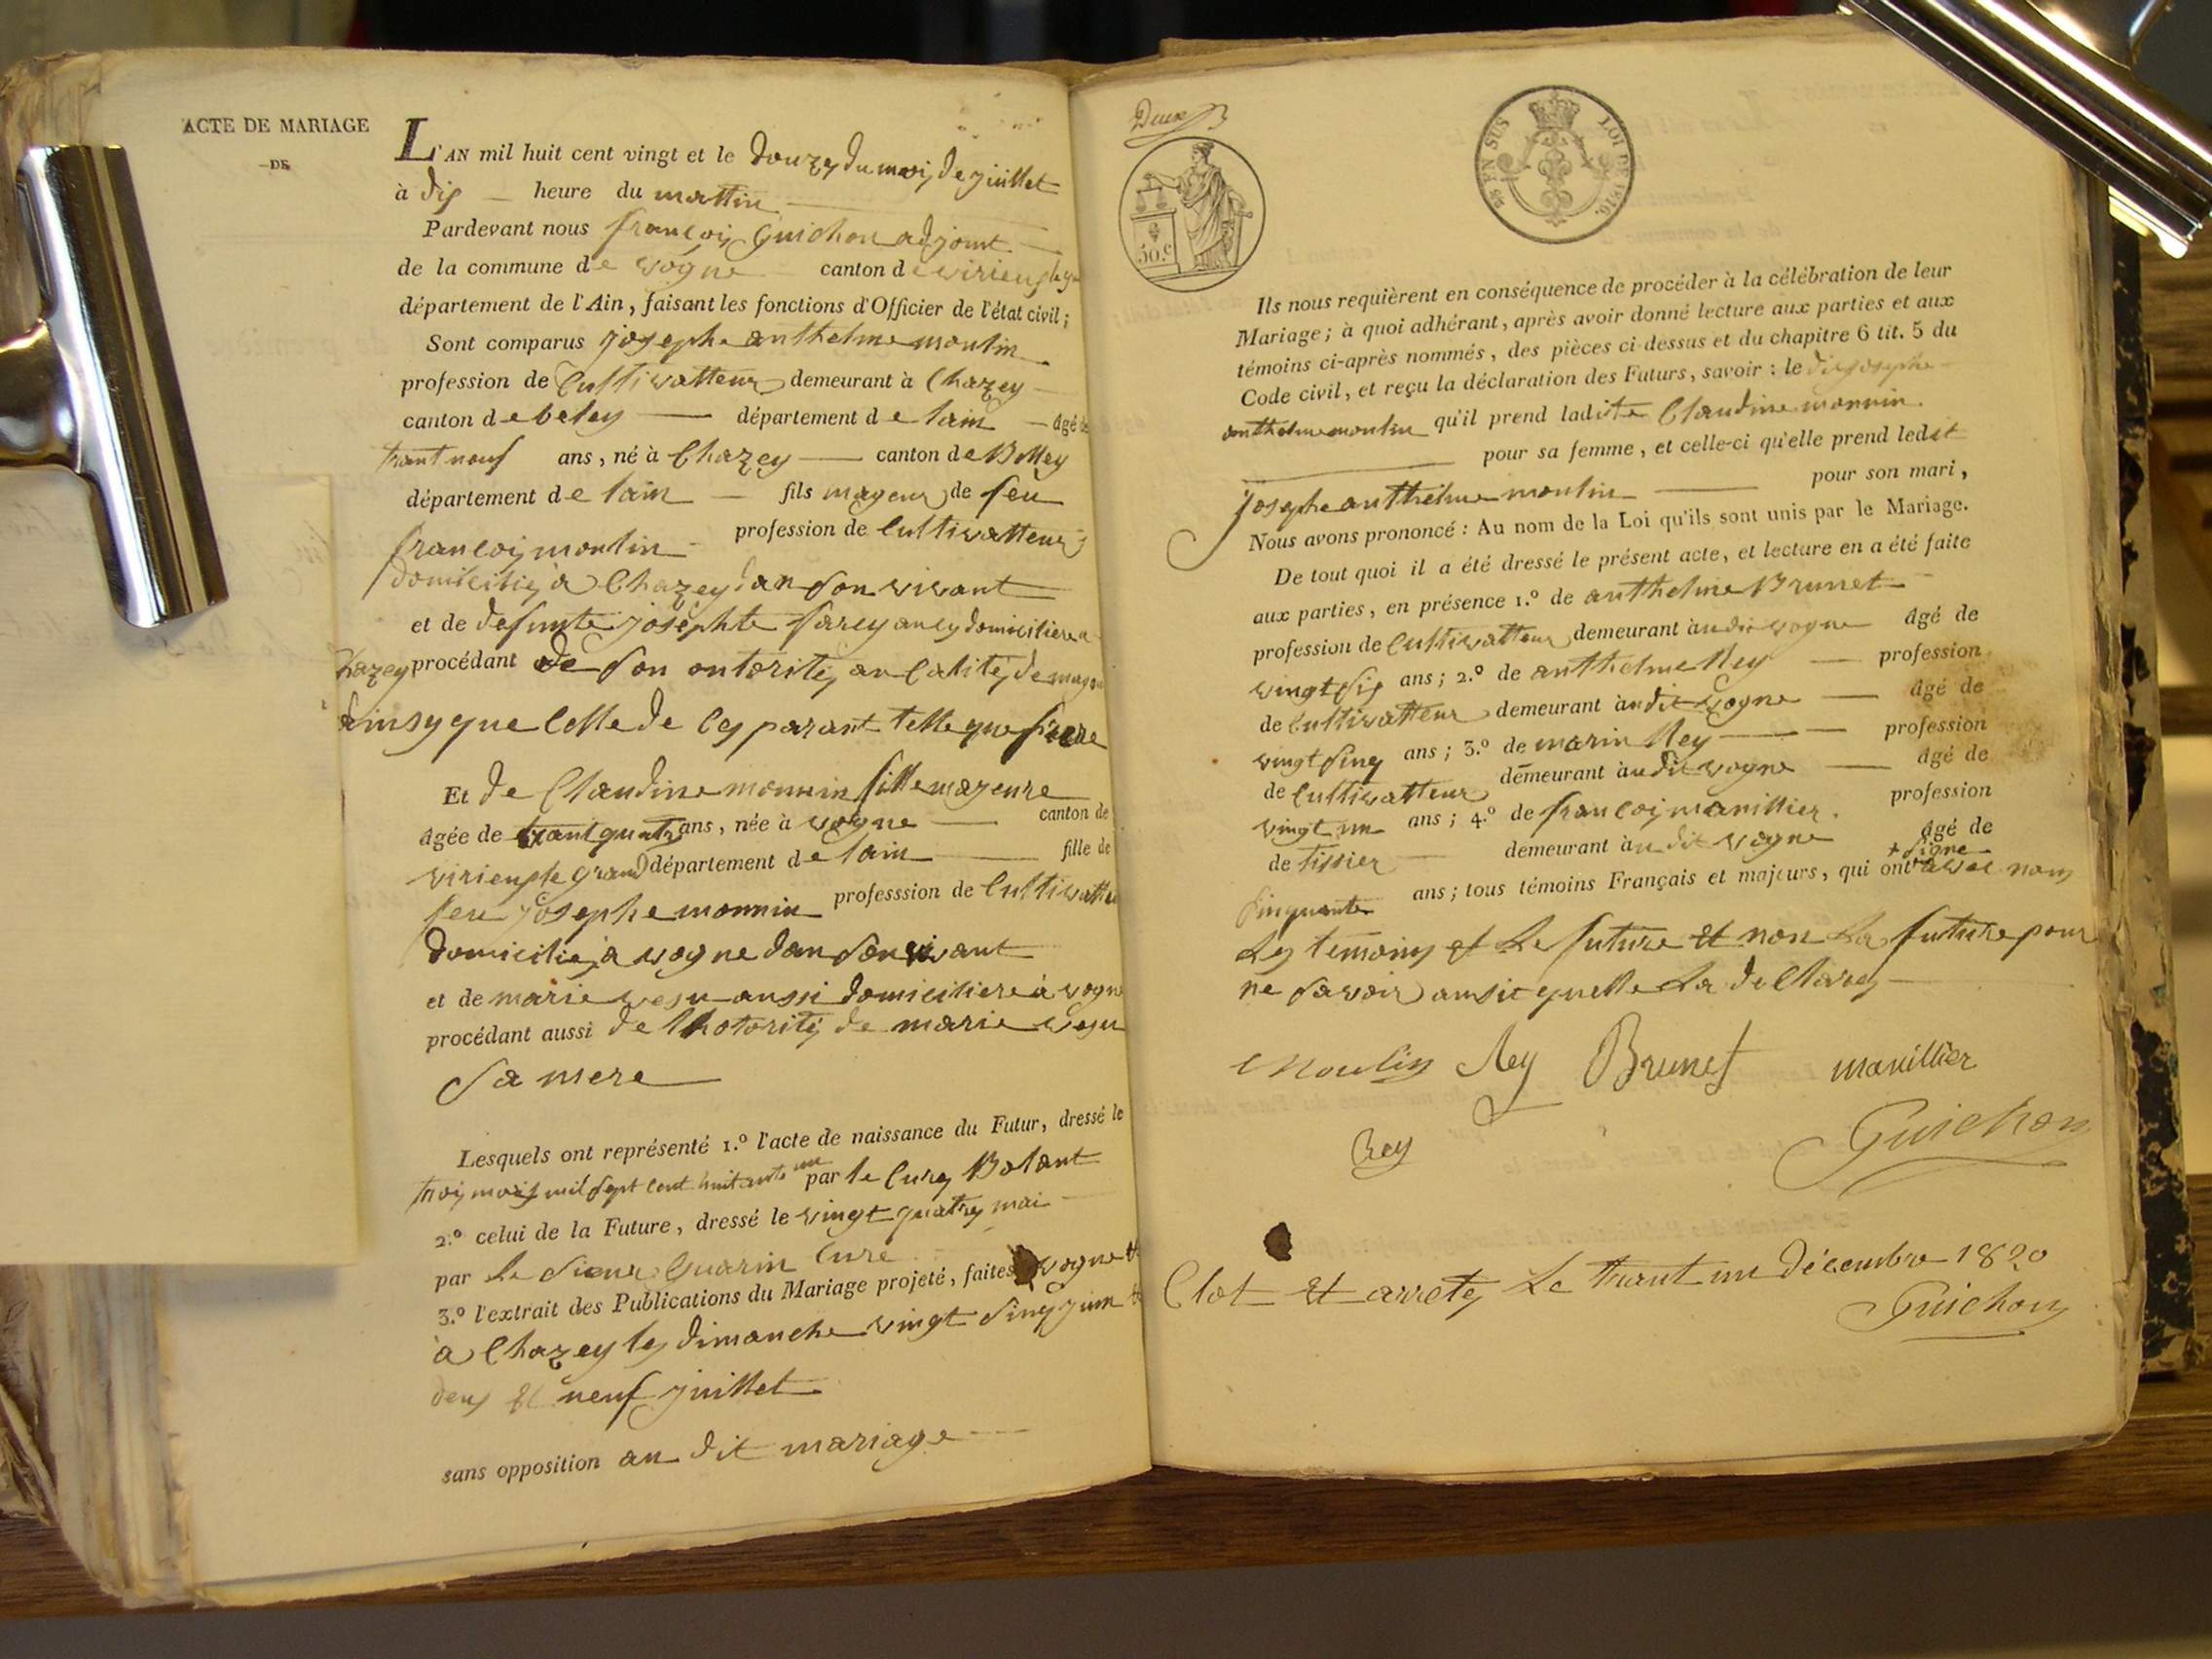 ACTE DE MARIAGE
DE
L'AN mil huit cent vingt et le douze du mois de juillet
à dix heure du mattin
Pardevant nous françois Guichon adjoint
de la commune de vogne canton de virieu le g
département de l'Ain, faisant les fonctions d'Officier de l'état civil;
Sont comparus josephe anthelme moulin
profession de Cultivatteur demeurant à Chazey
canton de beley département de lain âgé de
trant neuf ans, né à Chazey canton de Belley
département de lain fils mageur de feu
françois moulin profession de Cultivatteur
domicilié à Chazey dan son vivant
et de defunte josephte farcy domiciliere a
Chazey procédant de son otorité an calité de mageur
ainsy que celle de ces parant telle que frere
Et de Claudine monnin fille mageure
âgée de trant quatre ans, née à vogne canton de
virieu le grand département de lain fille de
feu josephe monnin professsion de Cultivatteu
domicilié à vogne dan son vivant
et de marie vesu aussi domiciliere à vogne
procédant aussi de lhotorité de marie vesu
sa mere
Lesquels ont représenté 1.º l'acte de naissance du Futur, dressé le
trois mars mil sept cent huitante un par le curé Bolant
2.º celui de la Future, dressé le vingt quatre mai
par le sieur Guarin curé
3.º l'extrait des Publications du Mariage projeté, faites vogne et
à Chazey les dimanche vingt sinq juin et
deux et neuf juillet
sans opposition au dit mariage
Deux
50.c
25 EN SUS LOI DE 1816.
Ils nous requièrent en conséquence de procéder à la célébration de leur
Mariage; à quoi adhérant, après avoir donné lecture aux parties et aux
témoins ci-après nommés, des pièces ci-dessus et du chapitre 6 tit. 5 du
Code civil, et reçu la déclaration des Futurs, savoir: le dit josephe
anthelme moulin qu'il prend ladite Claudine monnin
pour sa femme, et celle-ci qu'elle prend ledit
josephe anthelme moulin pour son mari,
Nous avons prononcé: Au nom de la Loi qu'ils sont unis par le Mariage.
De tout quoi il a été dressé le présent acte, et lecture en a été faite
aux parties, en présence 1.º de anthelme Brunet
profession de Cultivatteur demeurant àu dit vogne âgé de
vingt six ans; 2.º de anthelme Rey profession
de Cultivatteur demeurant àu dit vogne âgé de
vingt sinq ans; 3.º de marin Rey profession
de Cultivatteur demeurant àu dit vogne âgé de
vingt un ans; 4.º de françois manillier profession
de tissier demeurant àu dit vogne âgé de
+ signé
sinquante ans; tous témoins Français et majeurs, qui ont avec nous
les temoins et le future et non la future pour
ne savoir ansit quelle la declaré
Moulin Rey Brunet manillier
Rey Guichon
Clot et arreté le trant un décembre 1820
Guichon